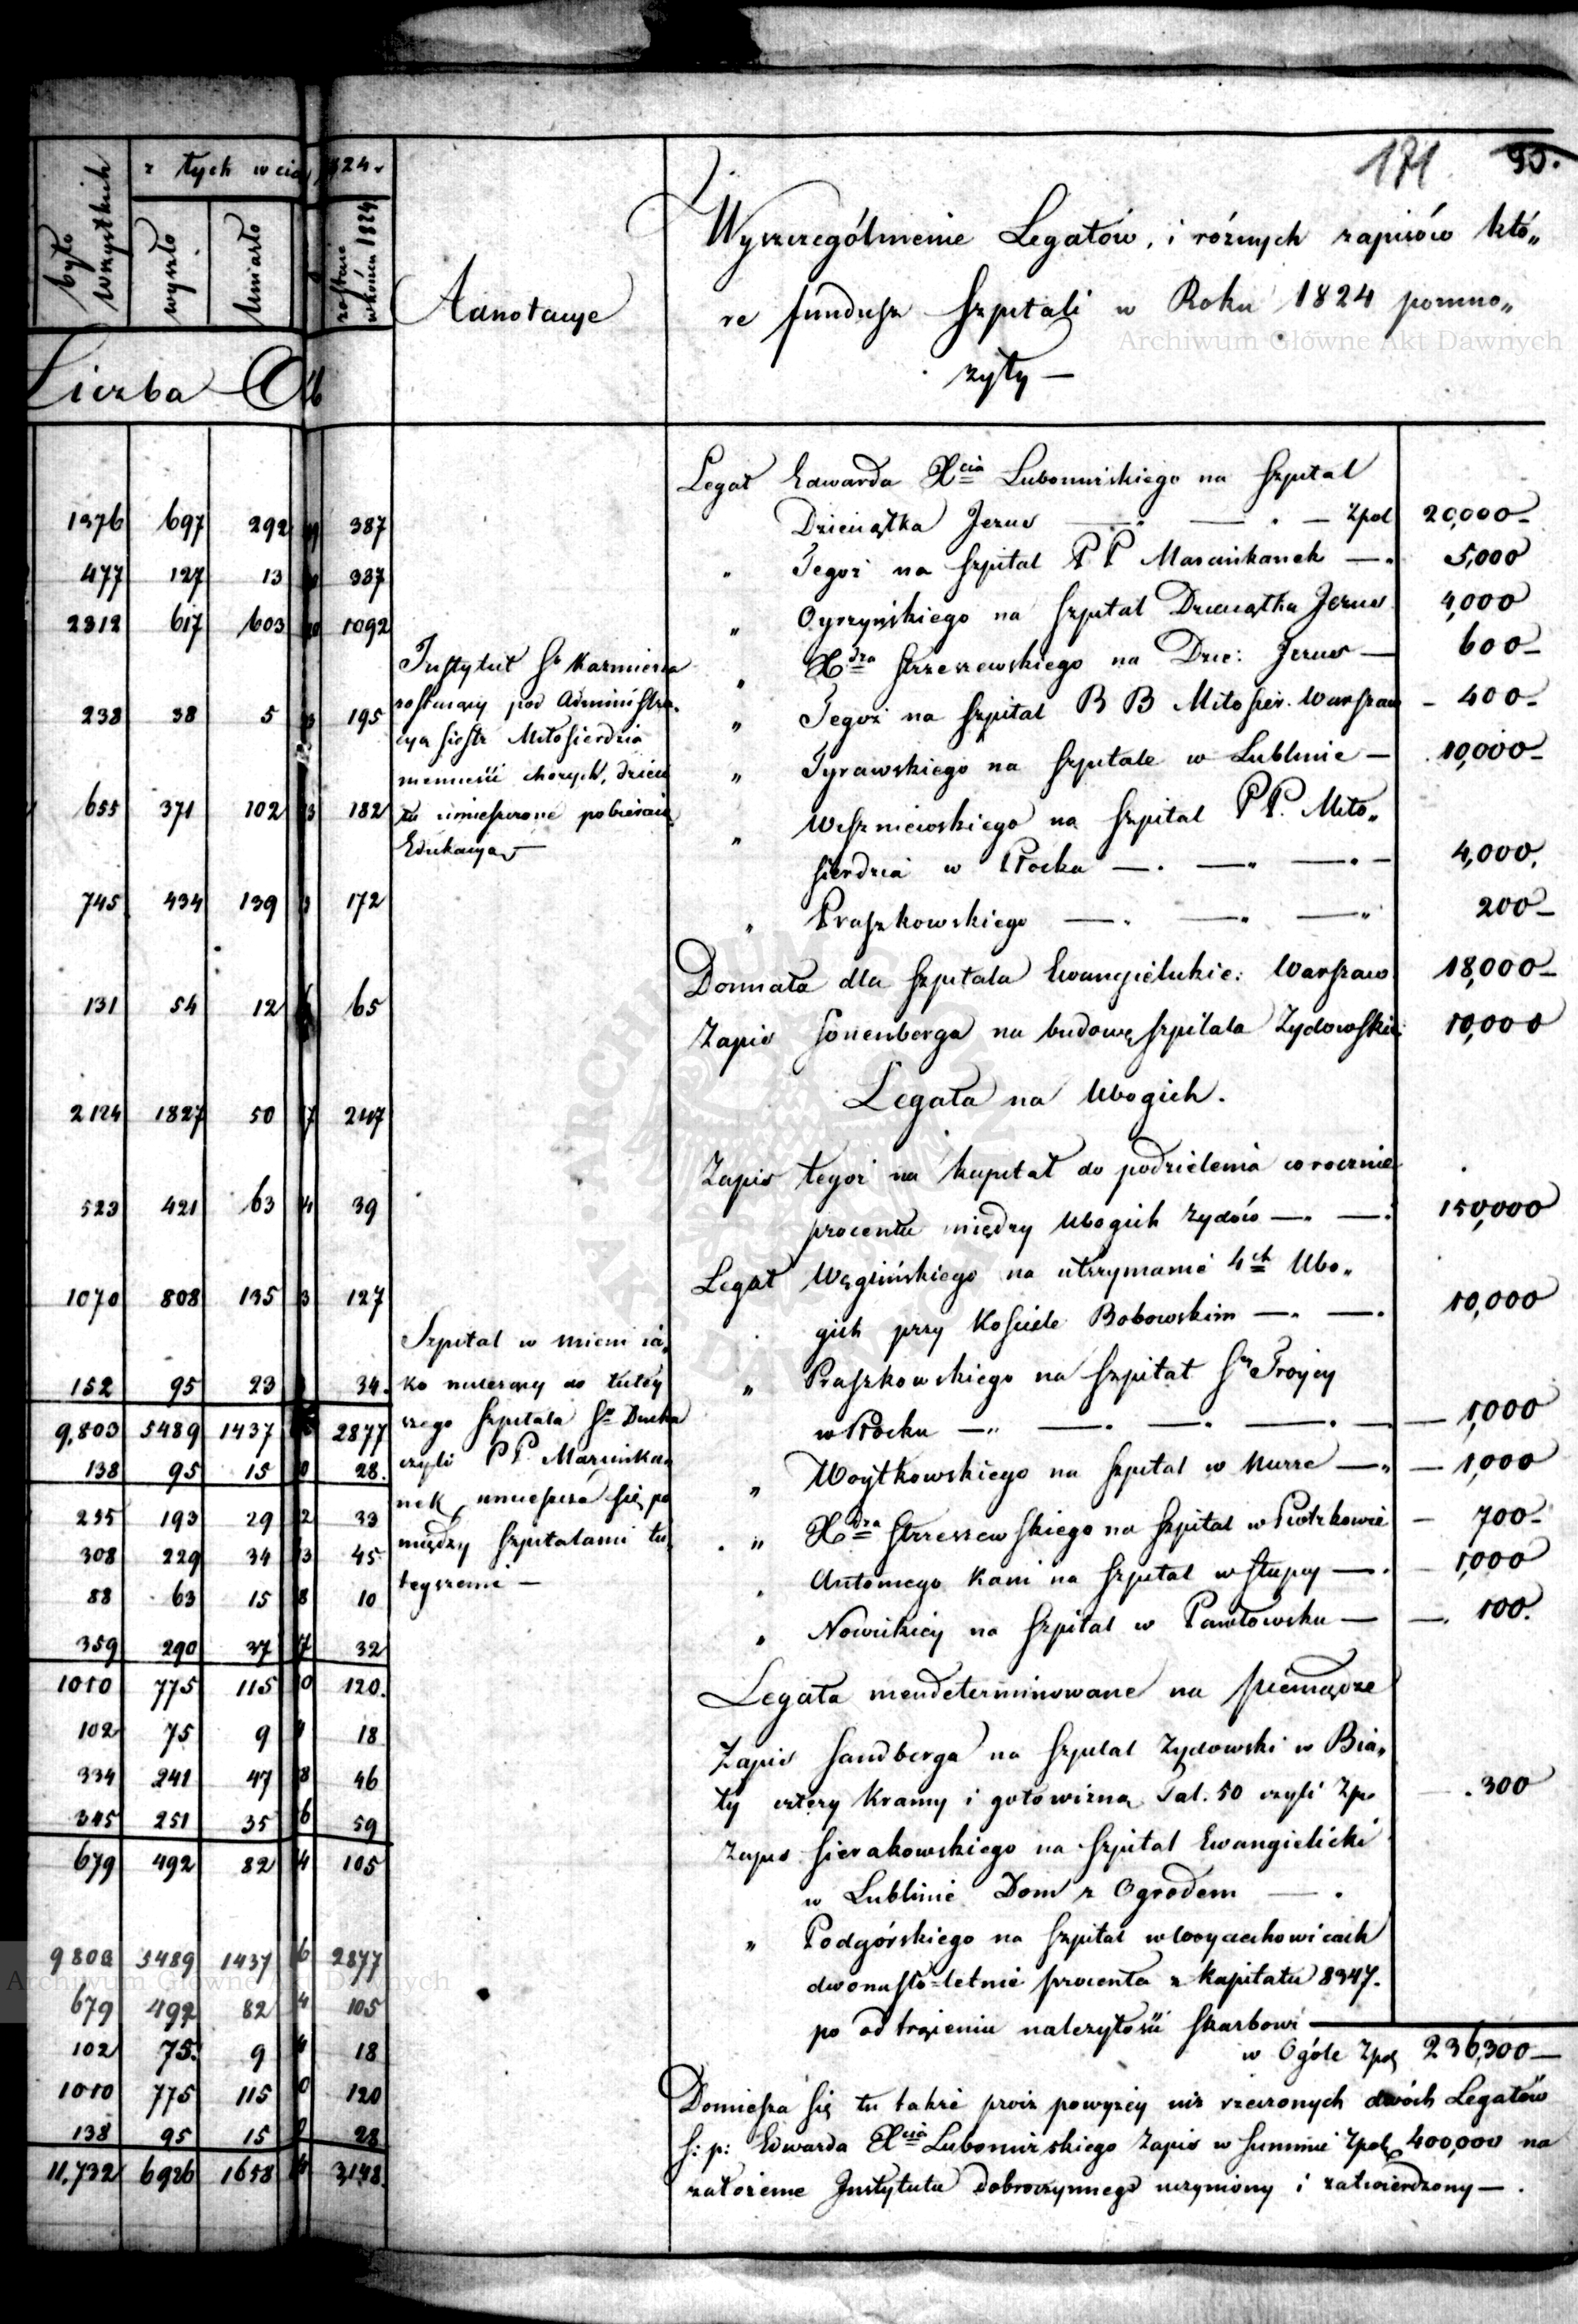 171 93.
z tych w cią 1824.
było wszystkich
wyszło
umarło
zostaie w końcu 1824
Adnotacye
Wyszczególnienie Legatów, i różnych zapisów któ„
re fundusz Szpitali w Roku 1824 pomno„
żyły —
Liczba Osób
1376 697 292 387
477 127 13 337
2312 617 603 1092
238 38 5 195
655 371 102 182
745 434 139 172
131 54 12 65
2124 1827 50 247
523 421 63 39
1070 808 135 127
152 95 23 34.
9,803 5489 1437 2877
138 95 15 28.
255 193 29 33
308 229 34 45
88 63 15 10
359 290 37 32
1010 775 115 120.
102 75 9 18
334 241 47 46
345 251 35 59
679 492 82 105
9803 5489 1437 2877
679 492 82 105
102 75. 9 18
1010 775 115 120
138 95 15 28
11,732 6926 1658 3,148.
Instytut Sº Kazmierza
zostaiący pod Administra„
cyą Siostr Miłosierdzia
niemieści chorych, dzieci
tu umieszczone pobieraią
Edukacyą —
Szpital w mieni ia„
ko należący do tutey
szego Szpitala Sº Ducha
czyli P P. Marcinka„
nek umieszcza się po
między Szpitalami tu„
teyszemi —
Legat Edwarda Xcia Lubomirskiego na Szpital
Dzieciątka Jezus — — — Zpol 20,000 —
„ Tegoż na Szpital P P Marcinkanek — 5,000
„ Ogrzyńskiego na Szpital Dzieciątka Jezus 4,000
„ Xdza Strzeszewskiego na Dzie: Jezus — 600 —
„ Tegoż na Szpital B B Miłosier. Warszaw — 400 —
„ Tyrawskiego na Szpitale w Lublinie — 10,000 —
„ Weszniewskiego na Szpital P P. Miło„
sierdzia w Płocku — — — 4,000.
„ Praszkowskiego — — — 200 —
Donnata dla Szpitala Ewangielickie: Warszaw 18,000 —
Zapis Sonenberga na budowę Szpitala Zydowskie: 10,000
Legata na Ubogich.
Zapis tegoż na kapitał do podzielenia corocznie
procentu między Ubogich żydów — — 150,000
Legat Węglińskiego na utrzymanie 4ch Ubo„
gich przy Kościele Bobowskim — — 10,000
„ Praszkowskiego na Szpital Sº Troycy
w Płocku — — — — — 1,000
„ Woytkowskiego na Szpital w Nurze — — 1,000
„ Xdza Strzeszewskiego na Szpital w Piotrkowie — 700 —
„ Antoniego Kani na Szpital w Słupcy — — 1,000
„ Nowickiey na Szpital w Pawłowsku — — 100.
Legata niendeterminowane na pieniądze
Zapis Sandberga na Szpital Zydowski w Bia„
ły cztery Kramy i gotowizną Tal. 50 czyli Zp. — 300
Zapis Sierakowskiego na Szpital Ewangielicki
w Lublinie Dom z Ogrodem —
„ Podgórskiego na Szpital w Woyciechowicach
dwonasto-letnie procenta z kapitału 8347.
po odtrąceniu należytości Skarbowi —
w Ogóle Zpol 236,300 —
Domieszcza się tu także procz powyżey niż rzeczonych dwóch Legatów
ś: p: Edwarda Xcia Lubomirskiego Zapis w Summie Zpol, 400,000 na
założenie Instytutu dobroczynnego uczyniony i zatwierdzony — .
Archiwum Główne Akt Dawnych
Archiwum Główne Akt Dawnych